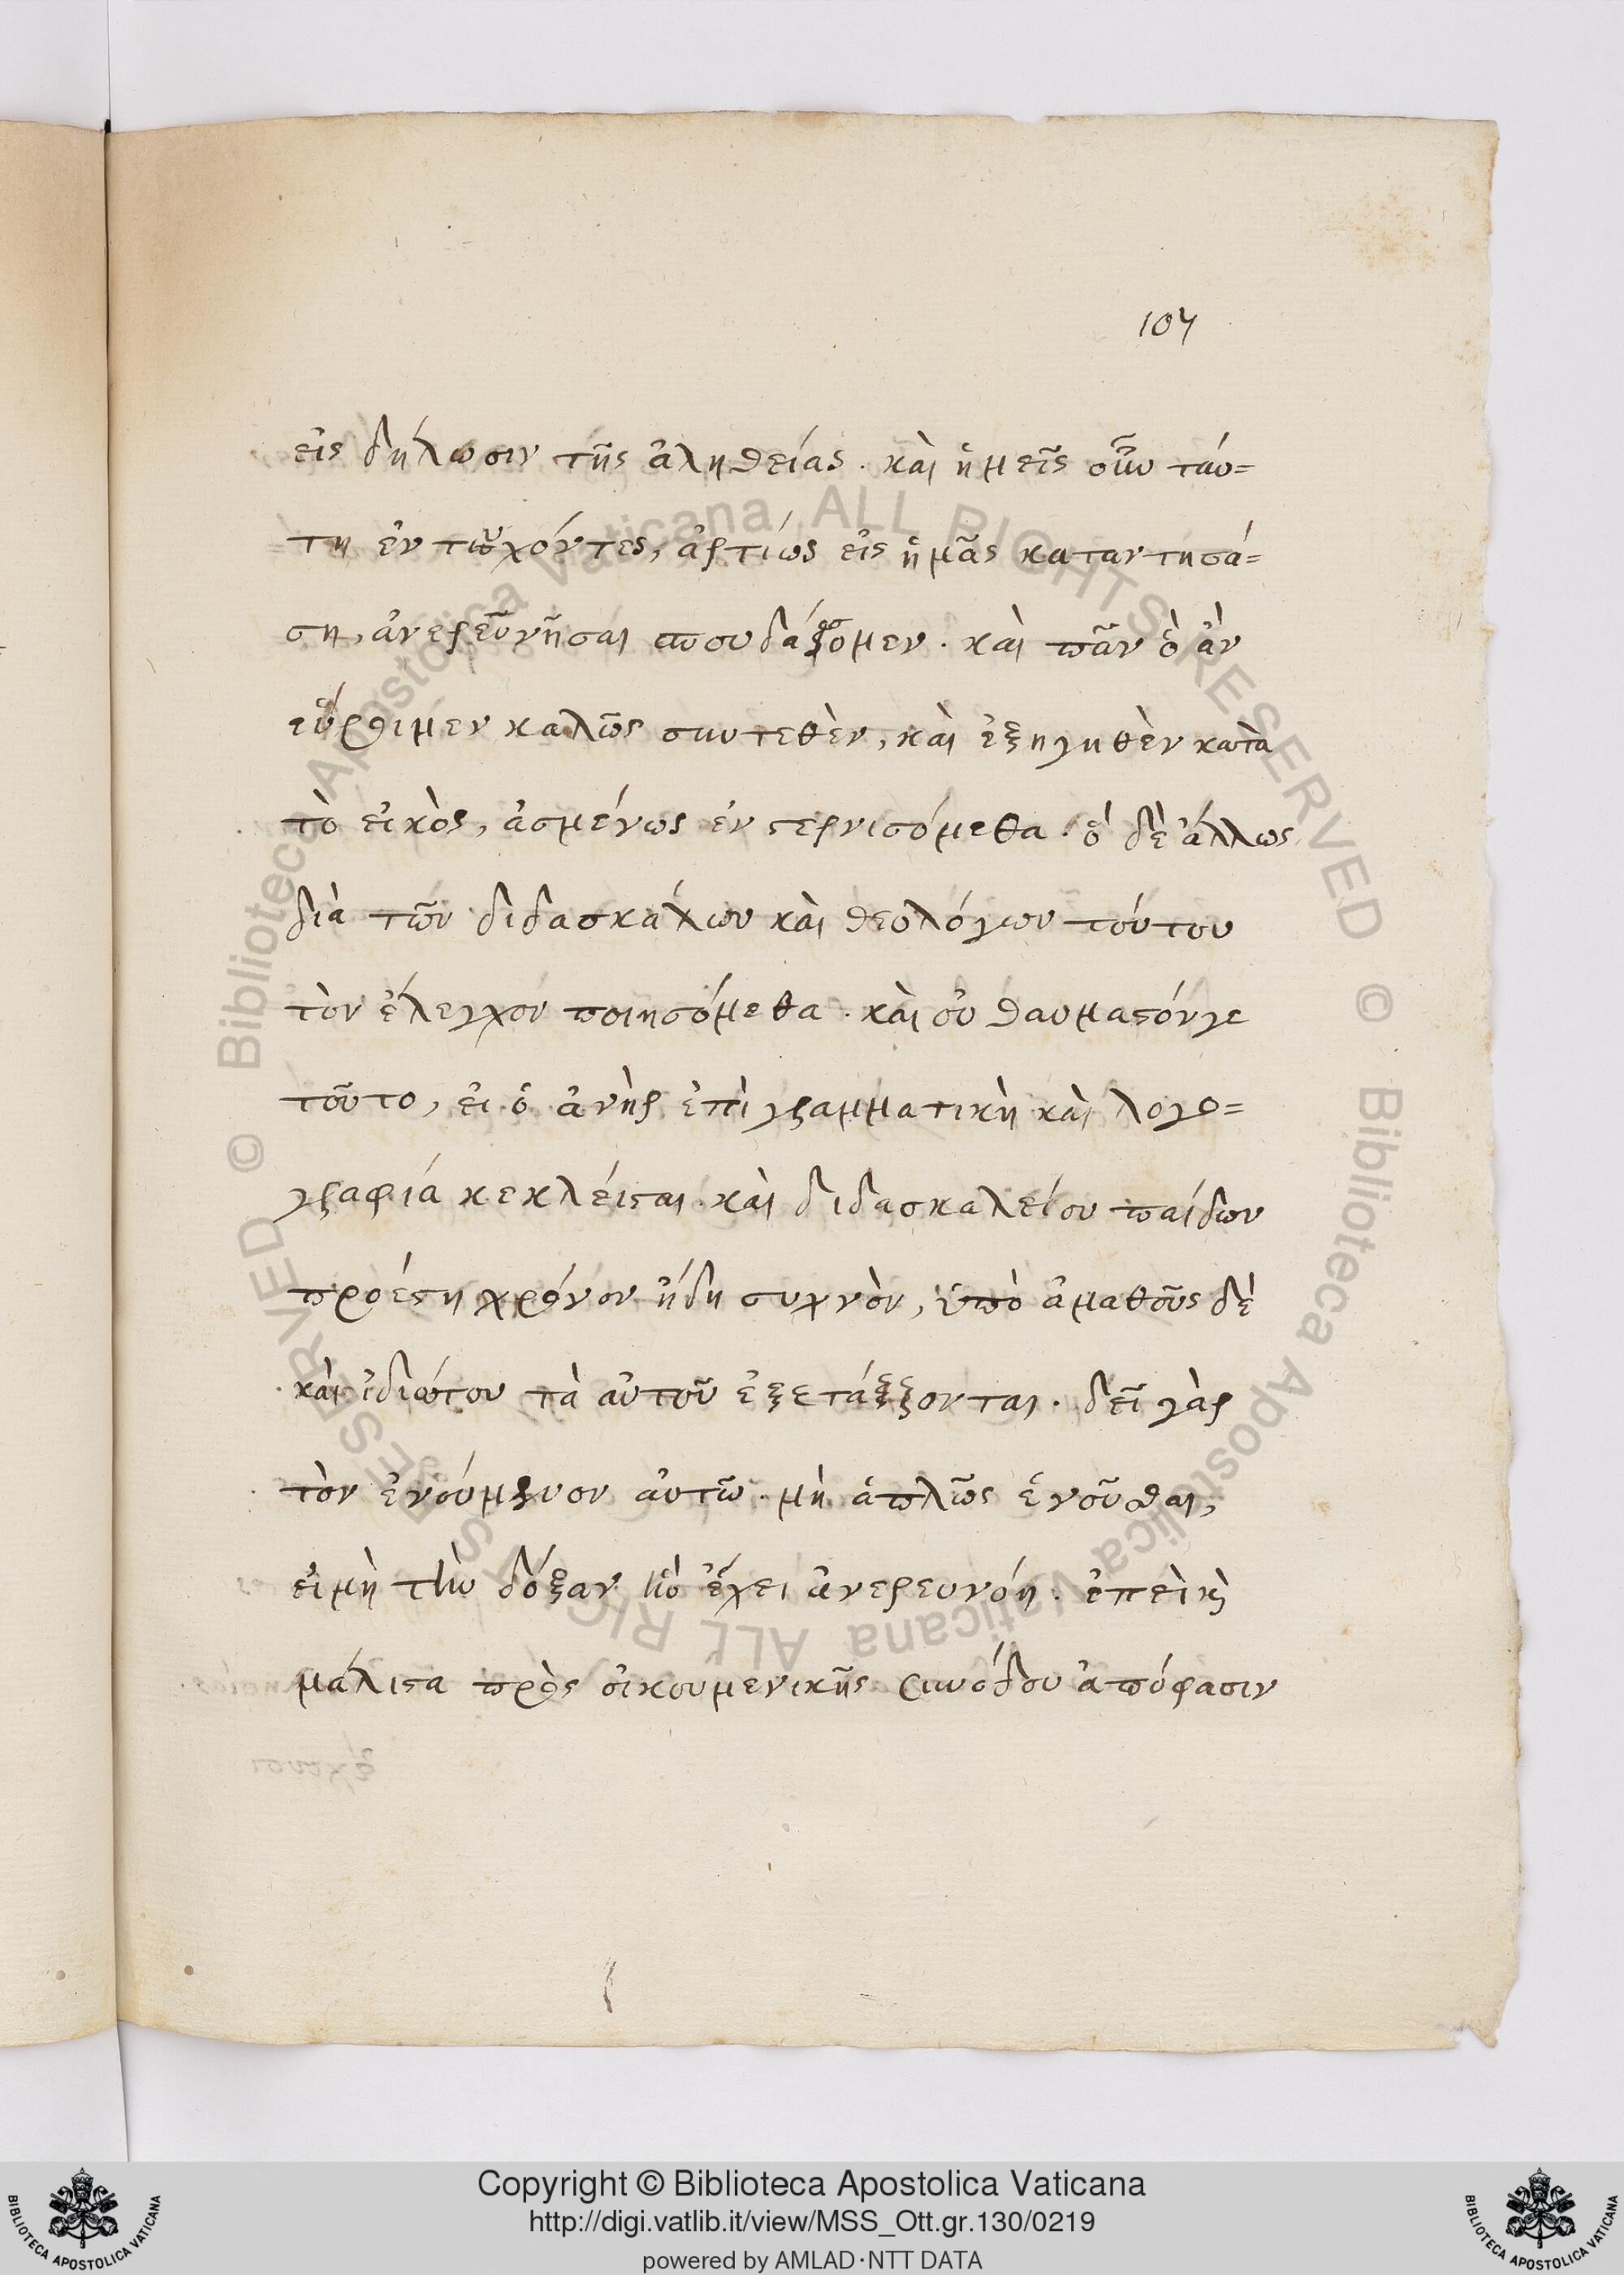 107
εἰς δήλωσιν τῆς ἀληθείας. καὶ ἡμεῖς οὖν ταύ=
τη ἐντυχόντες, ἀρτίως εἰς ἡμᾶς καταντησά=
ση, ἀνερευνῆσαι σπουδάσομεν. καὶ πᾶν ὃ ἂν
εὕροιμεν καλῶς συντεθὲν, καὶ ἐξηγηθὲν κατὰ
τὸ εἰκὸς, ἀσμένως ἐνστερνισόμεθα. ὃ δὲ ἄλλως
διὰ τῶν διδασκάλων καὶ θεολόγων τούτου
τὸν ἔλεγχον ποιησόμεθα. καὶ οὐ θαυμαστόν γε
τοῦτο, εἰ ὁ ἀνὴρ ἐπὶ γραμματικὴ καὶ λογο=
γραφιά κεκλέισται. καὶ διδασκαλείου παίδων
προέστη χρόνον ἤδη συχνὸν, ὑπὸ ἀμαθοῦς δὲ
καὶ ἰδιώτου τὰ αὐτοῦ ἐξετάζονται. δεῖ γὰρ
τὸν ἑνούμενον αὐτῶ. μὴ ἁπλῶς ἑνοῦσθαι,
εἰ μὴ τὴν δόξαν ἣν ἔχει ἀνερευνόη. ἐπεὶ καὶ
μάλιστα πρὸς οἰκουμενικῆς συνόδου ἀπόφασιν
Copyright © Biblioteca Apostolica Vaticana
http://digi.vatlib.it/view/MSS_Ott.gr.130/0219
powered by AMLAD·NTT DATA
© Biblioteca Apostolica Vaticana ALL RIGHTS RESERVED
© Biblioteca Apostolica Vaticana ALL RIGHTS RESERVED
BIBLIOTECA APOSTOLICA VATICANA
BIBLIOTECA APOSTOLICA VATICANA